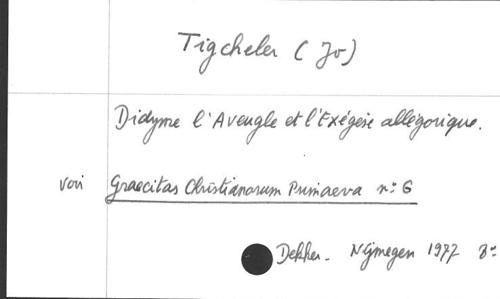 Tigcheler (Jo)
Didyme l'Aveugle et l'Exégèse allégorique.
voir Graecitas Christianorum Primaeva n° 6
Dekker. Nijmegen 1977 8°